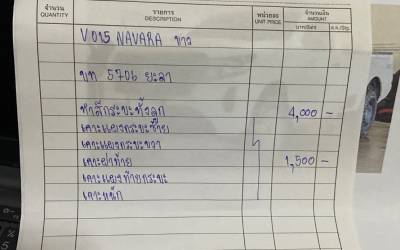 จำนวน รายการ หน่วยละ จำนวนเงิน
QUANTITY DESCRIPTION UNIT PRICE AMOUNT
VO15 NAVARA ขาว
บท 5706 ยะลา
ทำสีกระบะทั้งลูก 4,000 –
เคาะแผงกระบะซ้าย
เคาะแผงกระบะขวา
เคาะฝาท้าย 1,500 –
เคาะแผงท้ายกระบะ